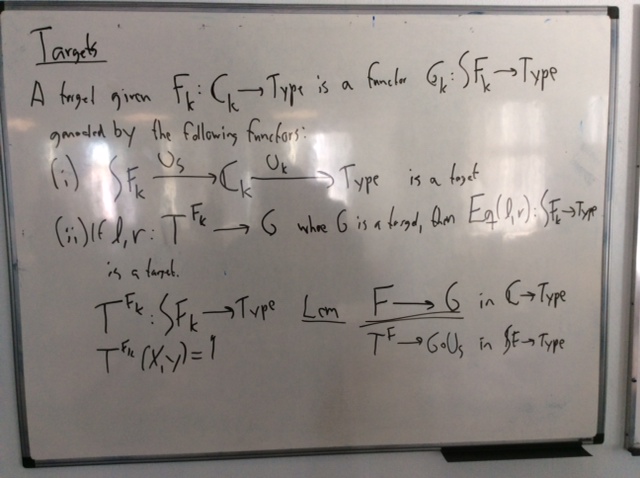 Targets
A target given F_k : C_k → Type is a functor G_k : ∫F_k → Type
generated by the following functors:
(i) ∫F_k —U_s→ C_k —U_k→ Type is a target
(ii) If l, r : T^{F_k} → G where G is a target, then Eq(l,r) : ∫F_k → Type
is a target.
T^{F_k} : ∫F_k → Type
T^{F_k}(X,y) = 1
Lem F → G in C → Type
T^F → G∘U_s in ∫F → Type